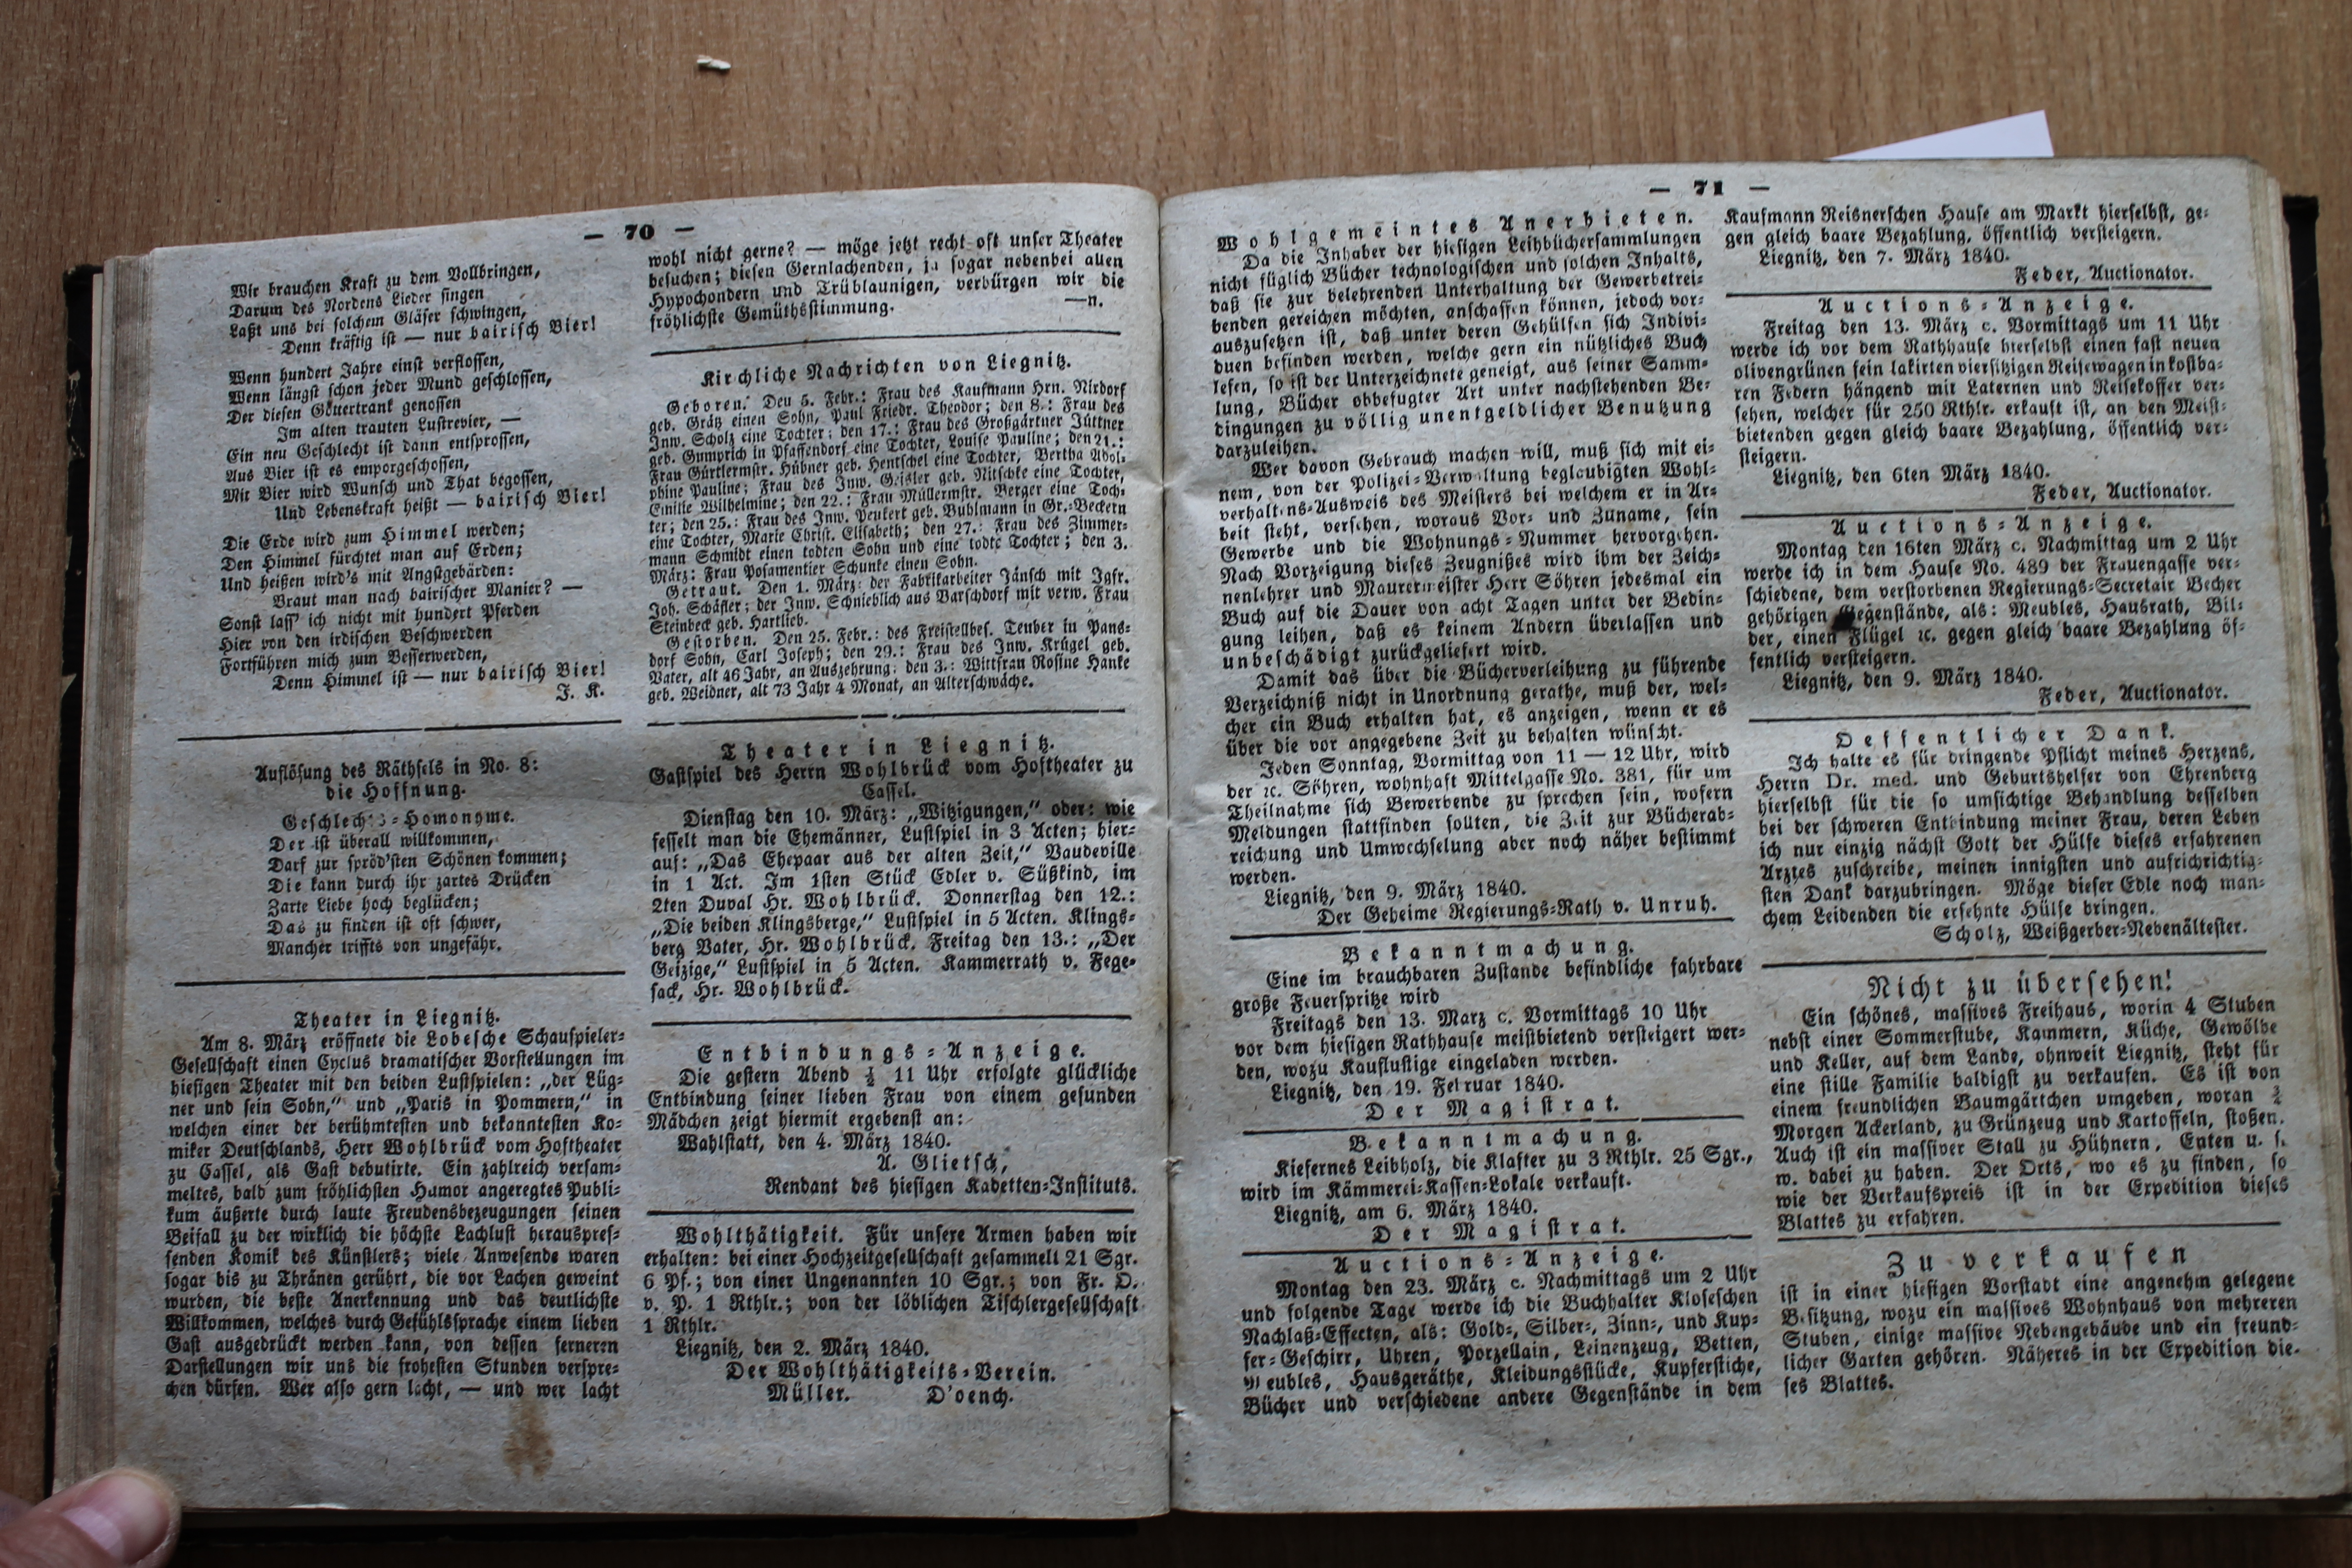 — 70 —
Wir brauchen Kraft zu dem Vollbringen,
Darum des Nordens Lieder singen
Laßt uns bei solchem Gläser schwingen,
Denn kräftig ist — nur bairisch Bier!
Wenn hundert Jahre einst verflossen,
Wenn längst schon jeder Mund geschlossen,
Der diesen Göttertrank genossen
Im alten trauten Lustrevier, —
Ein neu Geschlecht ist dann entsprossen,
Aus Bier ist es emporgeschossen,
Mit Bier wird Wunsch und That begossen,
Und Lebenskraft heißt — bairisch Bier!
Die Erde wird zum Himmel werden;
Den Himmel fürchtet man auf Erden;
Und heißen wird's mit Angstgebärden:
Braut man nach bairischer Manier? —
Sonst lass' ich nicht mit hundert Pferden
Hier von den irdischen Beschwerden
Fortführen mich zum Besserwerden,
Denn Himmel ist — nur bairisch Bier!
J. K.
Auflösung des Räthsels in No. 8:
die Hoffnung.
Geschlechts=Homonyme.
Der ist überall willkommen,
Darf zur spröd'sten Schönen kommen;
Die kann durch ihr zartes Drücken
Zarte Liebe hoch beglücken;
Das zu finden ist oft schwer,
Mancher triffts von ungefähr.
Theater in Liegnitz.
Am 8. März eröffnete die Lobesche Schauspieler=
Gesellschaft einen Cyclus dramatischer Vorstellungen im
hiesigen Theater mit den beiden Lustspielen: „der Lüg=
ner und sein Sohn,“ und „Paris in Pommern,“ in
welchen einer der berühmtesten und bekanntesten Ko=
miker Deutschlands, Herr Wohlbrück vom Hoftheater
zu Cassel, als Gast debutirte. Ein zahlreich versam=
meltes, bald zum fröhlichsten Humor angeregtes Publi=
kum äußerte durch laute Freudensbezeugungen seinen
Beifall zu der wirklich die höchste Lachlust herauspres=
senden Komik des Künstlers; viele Anwesende waren
sogar bis zu Thränen gerührt, die vor Lachen geweint
wurden, die beste Anerkennung und das deutlichste
Willkommen, welches durch Gefühlssprache einem lieben
Gast ausgedrückt werden kann, von dessen ferneren
Darstellungen wir uns die frohesten Stunden verspre=
chen dürfen. Wer also gern lacht, — und wer lacht
wohl nicht gerne? — möge jetzt recht oft unser Theater
besuchen; diesen Gernlachenden, ja sogar nebenbei allen
Hypochondern und Trüblaunigen, verbürgen wir die
fröhlichste Gemüthsstimmung. —n.
Kirchliche Nachrichten von Liegnitz.
Geboren. Den 5. Febr.: Frau des Kaufmann Hrn. Nixdorf
geb. Grätz einen Sohn, Paul Friedr. Theodor; den 8.: Frau des
Inw. Scholz eine Tochter; den 17.: Frau des Großgärtner Jüttner
geb. Gumprich in Pfaffendorf eine Tochter, Louise Pauline; den 21.:
Frau Gürtlermstr. Hübner geb. Hentschel eine Tochter, Bertha Adol=
phine Pauline; Frau des Inw. Geisler geb. Nitschke eine Tochter,
Emilie Wilhelmine; den 22.: Frau Müllermstr. Berger eine Toch=
ter; den 25.: Frau des Inw. Peukert geb. Buhlmann in Gr.=Beckern
eine Tochter, Marie Christ. Elisabeth; den 27.: Frau des Zimmer=
mann Schmidt einen todten Sohn und eine todte Tochter; den 3.
März: Frau Posamentier Schunke einen Sohn.
Getraut. Den 1. März: der Fabrikarbeiter Jänsch mit Jgfr.
Joh. Schäfler; der Inw. Schnieblich aus Barschdorf mit verw. Frau
Steinbeck geb. Hartlieb.
Gestorben. Den 25. Febr.: des Freistellbes. Teuber in Pans=
dorf Sohn, Carl Joseph; den 29.: Frau des Inw. Krügel geb.
Vater, alt 46 Jahr, an Auszehrung; den 3.: Wittfrau Rosine Hanke
geb. Weidner, alt 73 Jahr 4 Monat, an Alterschwäche.
Theater in Liegnitz.
Gastspiel des Herrn Wohlbrück vom Hoftheater zu
Cassel.
Dienstag den 10. März: „Witzigungen,“ oder: wie
fesselt man die Ehemänner, Lustspiel in 3 Acten; hier=
auf: „Das Ehepaar aus der alten Zeit,“ Vaudeville
in 1 Act. Im 1sten Stück Edler v. Süßkind, im
2ten Duval Hr. Wohlbrück. Donnerstag den 12.:
„Die beiden Klingsberge,“ Lustspiel in 5 Acten. Klings=
berg Vater, Hr. Wohlbrück. Freitag den 13.: „Der
Geizige,“ Lustspiel in 5 Acten. Kammerrath v. Fege=
sack, Hr. Wohlbrück.
Entbindungs=Anzeige.
Die gestern Abend ½ 11 Uhr erfolgte glückliche
Entbindung seiner lieben Frau von einem gesunden
Mädchen zeigt hiermit ergebenst an:
Wahlstatt, den 4. März 1840.
A. Glietsch,
Rendant des hiesigen Kadetten=Instituts.
Wohlthätigkeit. Für unsere Armen haben wir
erhalten: bei einer Hochzeitgesellschaft gesammelt 21 Sgr.
6 Pf.; von einer Ungenannten 10 Sgr.; von Fr. O.
v. P. 1 Rthlr.; von der löblichen Tischlergesellschaft
1 Rthlr.
Liegnitz, den 2. März 1840.
Der Wohlthätigkeits=Verein.
Müller. D'oench.
— 71 —
Wohlgemeintes Anerbieten.
Da die Inhaber der hiesigen Leihbüchersammlungen
nicht füglich Bücher technologischen und solchen Inhalts,
daß sie zur belehrenden Unterhaltung der Gewerbetrei=
benden gereichen möchten, anschaffen können, jedoch vor=
auszusetzen ist, daß unter deren Gehülfen sich Indivi=
duen befinden werden, welche gern ein nützliches Buch
lesen, so ist der Unterzeichnete geneigt, aus seiner Samm=
lung, Bücher obbefugter Art unter nachstehenden Be=
dingungen zu völlig unentgeldlicher Benutzung
darzuleihen.
Wer davon Gebrauch machen will, muß sich mit ei=
nem, von der Polizei=Verwaltung beglaubigten Wohl=
verhaltens=Ausweis des Meisters bei welchem er in Ar=
beit steht, versehen, woraus Vor= und Zuname, sein
Gewerbe und die Wohnungs=Nummer hervorgehen.
Nach Vorzeigung dieses Zeugnißes wird ihm der Zeich=
nenlehrer und Maurermeister Herr Söhren jedesmal ein
Buch auf die Dauer von acht Tagen unter der Bedin=
gung leihen, daß es keinem Andern überlassen und
unbeschädigt zurückgeliefert wird.
Damit das über die Bücherverleihung zu führende
Verzeichniß nicht in Unordnung gerathe, muß der, wel=
cher ein Buch erhalten hat, es anzeigen, wenn er es
über die vor angegebene Zeit zu behalten wünscht.
Jeden Sonntag, Vormittag von 11 — 12 Uhr, wird
der ꝛc. Söhren, wohnhaft Mittelgasse No. 381, für um
Theilnahme sich Bewerbende zu sprechen sein, wofern
Meldungen stattfinden sollten, die Zeit zur Bücherab=
reichung und Umwechselung aber noch näher bestimmt
werden.
Liegnitz, den 9. März 1840.
Der Geheime Regierungs=Rath v. Unruh.
Bekanntmachung.
Eine im brauchbaren Zustande befindliche fahrbare
große Feuerspritze wird
Freitags den 13. März c. Vormittags 10 Uhr
vor dem hiesigen Rathhause meistbietend versteigert wer=
den, wozu Kauflustige eingeladen werden.
Liegnitz, den 19. Februar 1840.
Der Magistrat.
Bekanntmachung.
Kiefernes Leibholz, die Klafter zu 3 Rthlr. 25 Sgr.,
wird im Kämmerei=Kassen=Lokale verkauft.
Liegnitz, am 6. März 1840.
Der Magistrat.
Auctions=Anzeige.
Montag den 23. März c. Nachmittags um 2 Uhr
und folgende Tage werde ich die Buchhalter Kloseschen
Nachlaß=Effecten, als: Gold=, Silber=, Zinn=, und Kup=
fer=Geschirr, Uhren, Porzellain, Leinenzeug, Betten,
Meubles, Hausgeräthe, Kleidungsstücke, Kupferstiche,
Bücher und verschiedene andere Gegenstände in dem
Kaufmann Reisnerschen Hause am Markt hierselbst, ge=
gen gleich baare Bezahlung, öffentlich versteigern.
Liegnitz, den 7. März 1840.
Feder, Auctionator.
Auctions=Anzeige.
Freitag den 13. März c. Vormittags um 11 Uhr
werde ich vor dem Rathhause hierselbst einen fast neuen
olivengrünen fein lakirten viersitzigen Reisewagen in kostba=
ren Federn hängend mit Laternen und Reisekoffer ver=
sehen, welcher für 250 Rthlr. erkauft ist, an den Meist=
bietenden gegen gleich baare Bezahlung, öffentlich ver=
steigern.
Liegnitz, den 6ten März 1840.
Feder, Auctionator.
Auctions=Anzeige.
Montag den 16ten März c. Nachmittag um 2 Uhr
werde ich in dem Hause No. 489 der Frauengasse ver=
schiedene, dem verstorbenen Regierungs=Secretair Becher
gehörigen Gegenstände, als: Meubles, Hausrath, Bil=
der, einen Flügel ꝛc. gegen gleich baare Bezahlung öf=
fentlich versteigern.
Liegnitz, den 9. März 1840.
Feder, Auctionator.
Oeffentlicher Dank.
Ich halte es für dringende Pflicht meines Herzens,
Herrn Dr. med. und Geburtshelfer von Ehrenberg
hierselbst für die so umsichtige Behandlung desselben
bei der schweren Entbindung meiner Frau, deren Leben
ich nur einzig nächst Gott der Hülfe dieses erfahrenen
Arztes zuschreibe, meinen innigsten und aufrichrichtig=
sten Dank darzubringen. Möge dieser Edle noch man=
chem Leidenden die ersehnte Hülfe bringen.
Scholz, Weißgerber=Nebenältester.
Nicht zu übersehen!
Ein schönes, massives Freihaus, worin 4 Stuben
nebst einer Sommerstube, Kammern, Küche, Gewölbe
und Keller, auf dem Lande, ohnweit Liegnitz, steht für
eine stille Familie baldigst zu verkaufen. Es ist von
einem freundlichen Baumgärtchen umgeben, woran
Morgen Ackerland, zu Grünzeug und Kartoffeln, stoßen.
Auch ist ein massiver Stall zu Hühnern, Enten u. s.
w. dabei zu haben. Der Orts, wo es zu finden, so
wie der Verkaufspreis ist in der Expedition dieses
Blattes zu erfahren.
Zu verkaufen
ist in einer hiesigen Vorstadt eine angenehm gelegene
Besitzung, wozu ein massives Wohnhaus von mehreren
Stuben, einige massive Nebengebäude und ein freund=
licher Garten gehören. Näheres in der Expedition die=
ses Blattes.